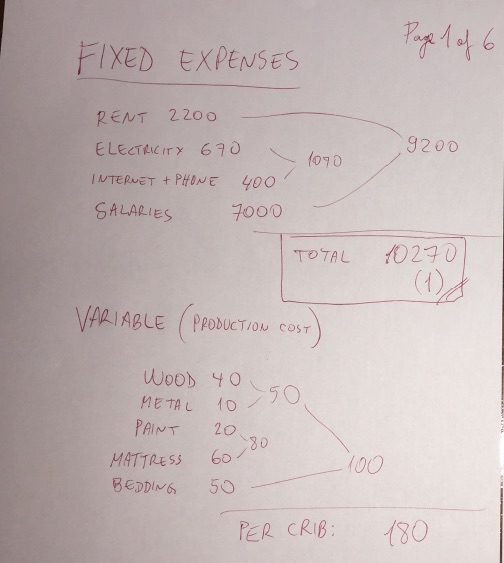 Page 1 of 6
FIXED EXPENSES
RENT 2200
9200
ELECTRICITY 670
1070
INTERNET + PHONE 400
SALARIES 7000
TOTAL 10270
(1)
VARIABLE (PRODUCTION COST)
WOOD 40
50
METAL 10
PAINT 20
80
MATTRESS 60
100
BEDDING 50
PER CRIB: 180